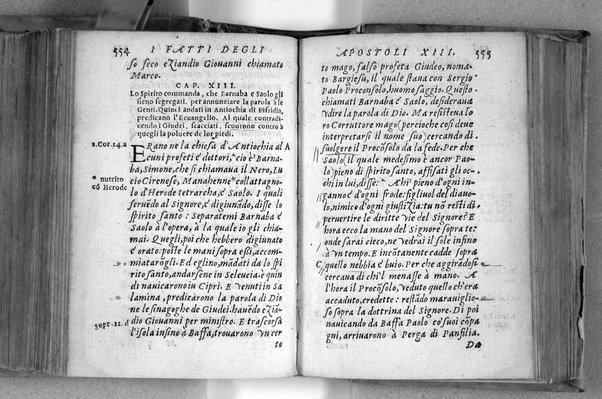 554 I FATTI DEGLI
so seco eziandio Giouanni chiamato
Marco.
CAP. XIII.
Lo Spirito commanda, che Earnaba e Saolo gli
sieno segregati. per annunziare la parola à le
Genti. Quini andati in Antiochia di Pisidia,
predicano l'Euangelio. Al quale contradi-
cendo i Giudei, scacciati, scuotono contro à
quegli la poluere de lor piedi.
ERano ne la chiesa d'Antiochia al A
1.Cor.14.a
cuni profeti e dottori, cio è Barna-
ba, Simone, che si chiamaua il Nero, Lu
* nutrito
cio Cirenese, Manahenne* collattagno-
cō Herode
lo d'Herode tetrarcha, e Saolo. I quali
seruēdo al Signore, e digiunādo, disse lo
spirito santo: Separatemi Barnaba e
Saolo à l'opera, à la quale io gli chia-
mai. Quegli, poi che hebbero digiunato
e orato: poste le mani sopra essi, accom-
miatarōgli. Ed eglino, mādati da lo spi
rito santo, andarsene in Seleucia: è quin
di nauicarono in Cipri. E venuti in Sa
lamina, predicarono la parola di Dio
ne le sinagoghe de Giudei. hauēdo eziā-
supr.12.d
dio Giouanni per ministro. E trascorsa
l'isola insino à Baffa, trouarono vn cer
to
APOSTOLI XIII. 555
to mago, falso profeta Giudeo, noma-
to Bargiesù, il quale staua con Sergio
Paolo Proconsolo, huomo saggio. Questo
chiamati Barnaba e Saolo, desideraua
vdire la parola di Dio. Ma resisteua lo
ro Corruttore mago (percioche così deue
interpretarsi il nome suo) cercando di
suolgere il Procōsolo da la fede. Per che
Saolo (il quale medesimo è ancor Pao-
lo) pieno di spirito santo, affisati gli oc-
chi in lui, disse: Ahi pieno d'ogni in-
ganno e d'ogni frode: figliuol del diauo-
lo, nimico d'ogni giustizia: tu nō resti di
peruertire le diritte vie del Signore? E
hora ecco la mano del Signore sopra te:
onde sarai cieco, ne vedrai il sole insino
à vn tempo. E incōtanente cadde sopra
C quello nebbia e buio. Per che aggirādosi
cercaua di chi'l menasse à mano. A
l'hora il Procōsolo, veduto quello ch'era
accaduto, credette: restādo marauiglio-
so sopra la dottrina del Signore. Di poi
nauicando da Baffa Paolo co' suoi cōpa
gni, arriuarono à Perga di Panfilia.
Da